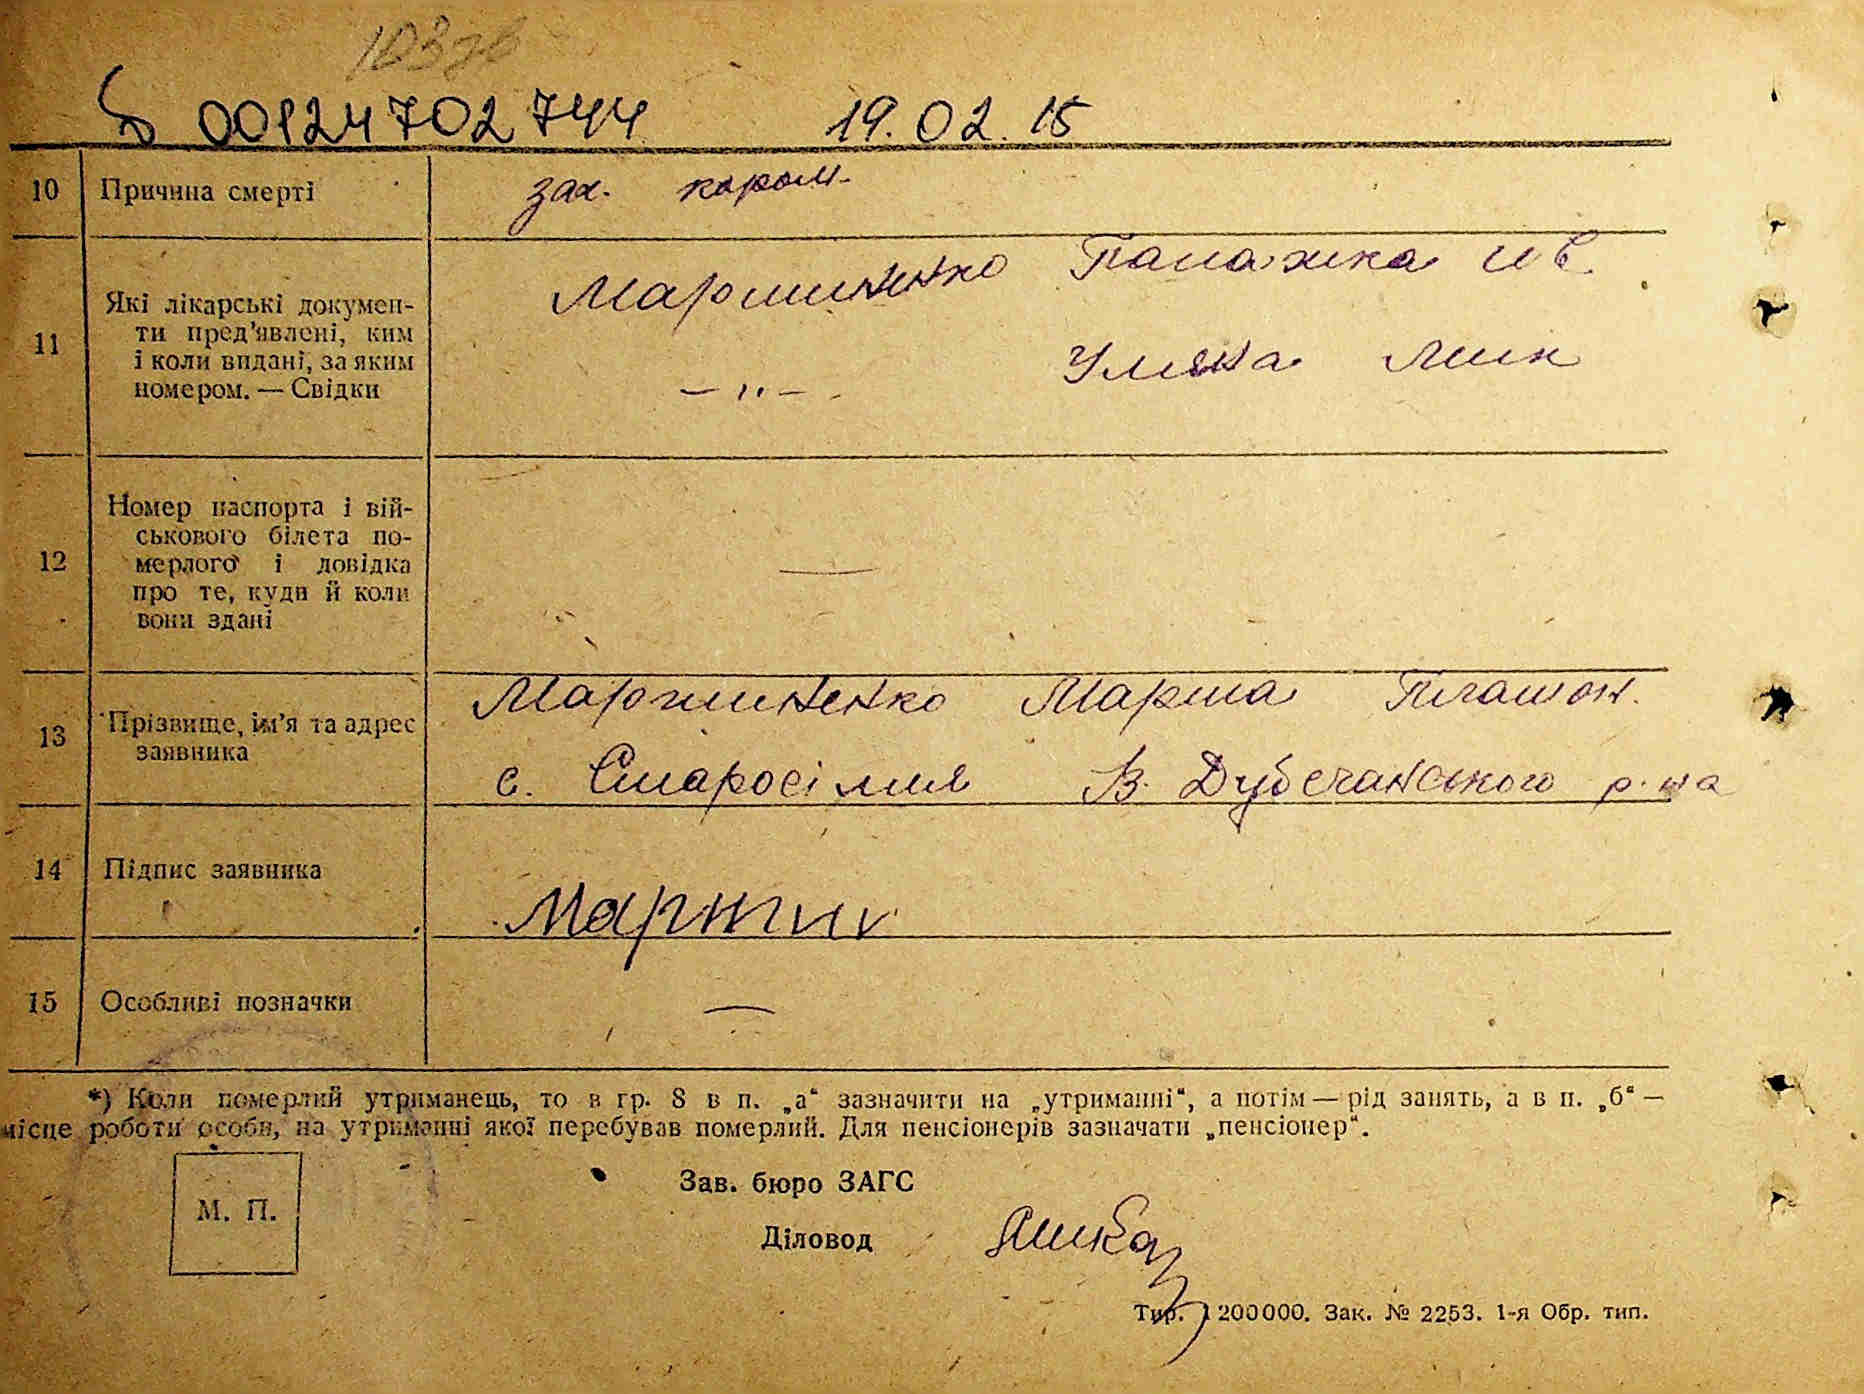 00124702744 19.02.15
10 Причина смерті зах. кором.
11 Які лікарські докумен-
ти пред'явлені, ким
і коли видані, за яким
номером. — Свідки
Мартиненко Палажка Ив.
— " — Уляна Мик
12 Номер паспорта і вій-
ськового білета по-
мерлого і довідка
про те, куди й коли
вони здані
—
13 Прізвище, ім'я та адрес
заявника
Мартиненко Марія Платон.
с. Старосілля В. Дубечанського р-на
14 Підпис заявника Мартин
15 Особливі позначки —
*) Коли померлий утриманець, то в гр. 8 в п. „а“ зазначити на „утриманні“, а потім — рід занять, а в п. „б“ —
місце роботи особи, на утриманні якої перебував померлий. Для пенсіонерів зазначати „пенсіонер“.
М. П.
Зав. бюро ЗАГС
Діловод
Тир. 1200000. Зак. № 2253. 1-я Обр. тип.